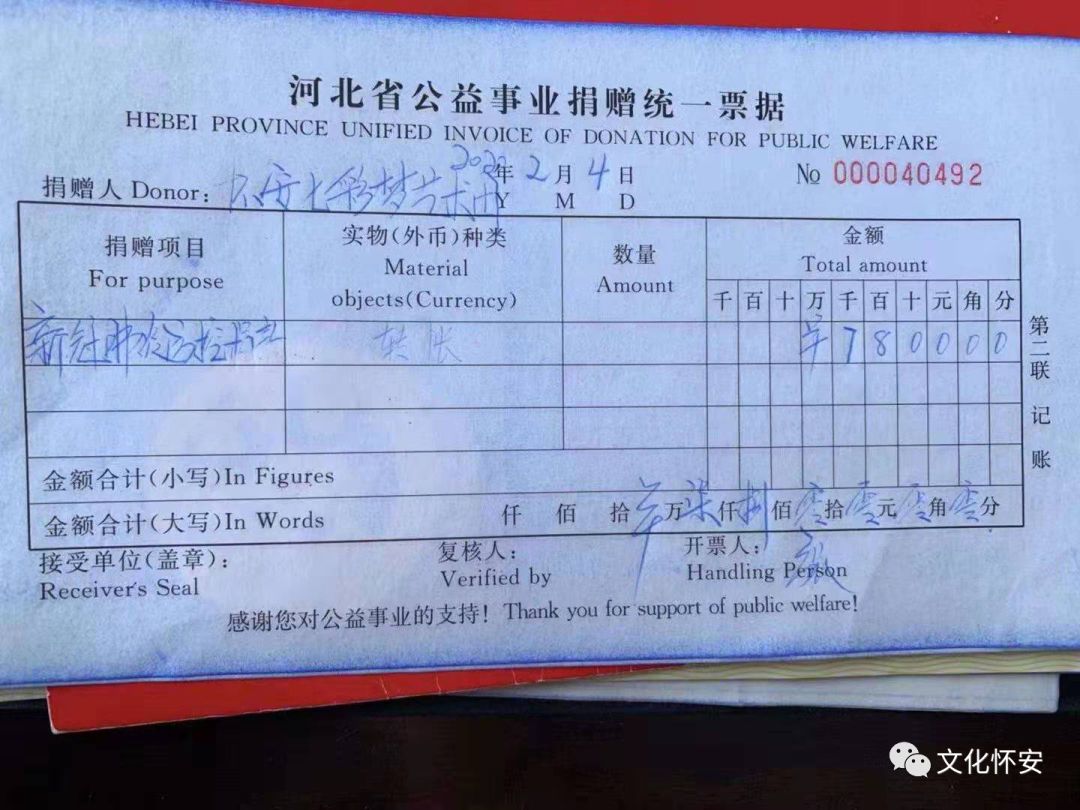 河北省公益事业捐赠统一票据
HEBEI PROVINCE UNIFIED INVOICE OF DONATION FOR PUBLIC WELFARE
捐赠人 Donor: 怀安七彩梦艺术团
2022年 2月 4日 № 000040492
Y M D
捐赠项目 For purpose
实物(外币)种类 Material objects(Currency)
数量 Amount
金额 Total amount
千 百 十 万 千 百 十 元 角 分
新冠肺炎防控捐款 转账 ¥ 7 8 0 0 0 0
金额合计(小写)In Figures
金额合计(大写)In Words 仟 佰 拾 ¥万 柒仟 捌佰 零拾 零元 零角 零分
接受单位(盖章): Receiver's Seal
复核人: Verified by
开票人: Handling Person
感谢您对公益事业的支持! Thank you for support of public welfare!
第二联 记账
文化怀安